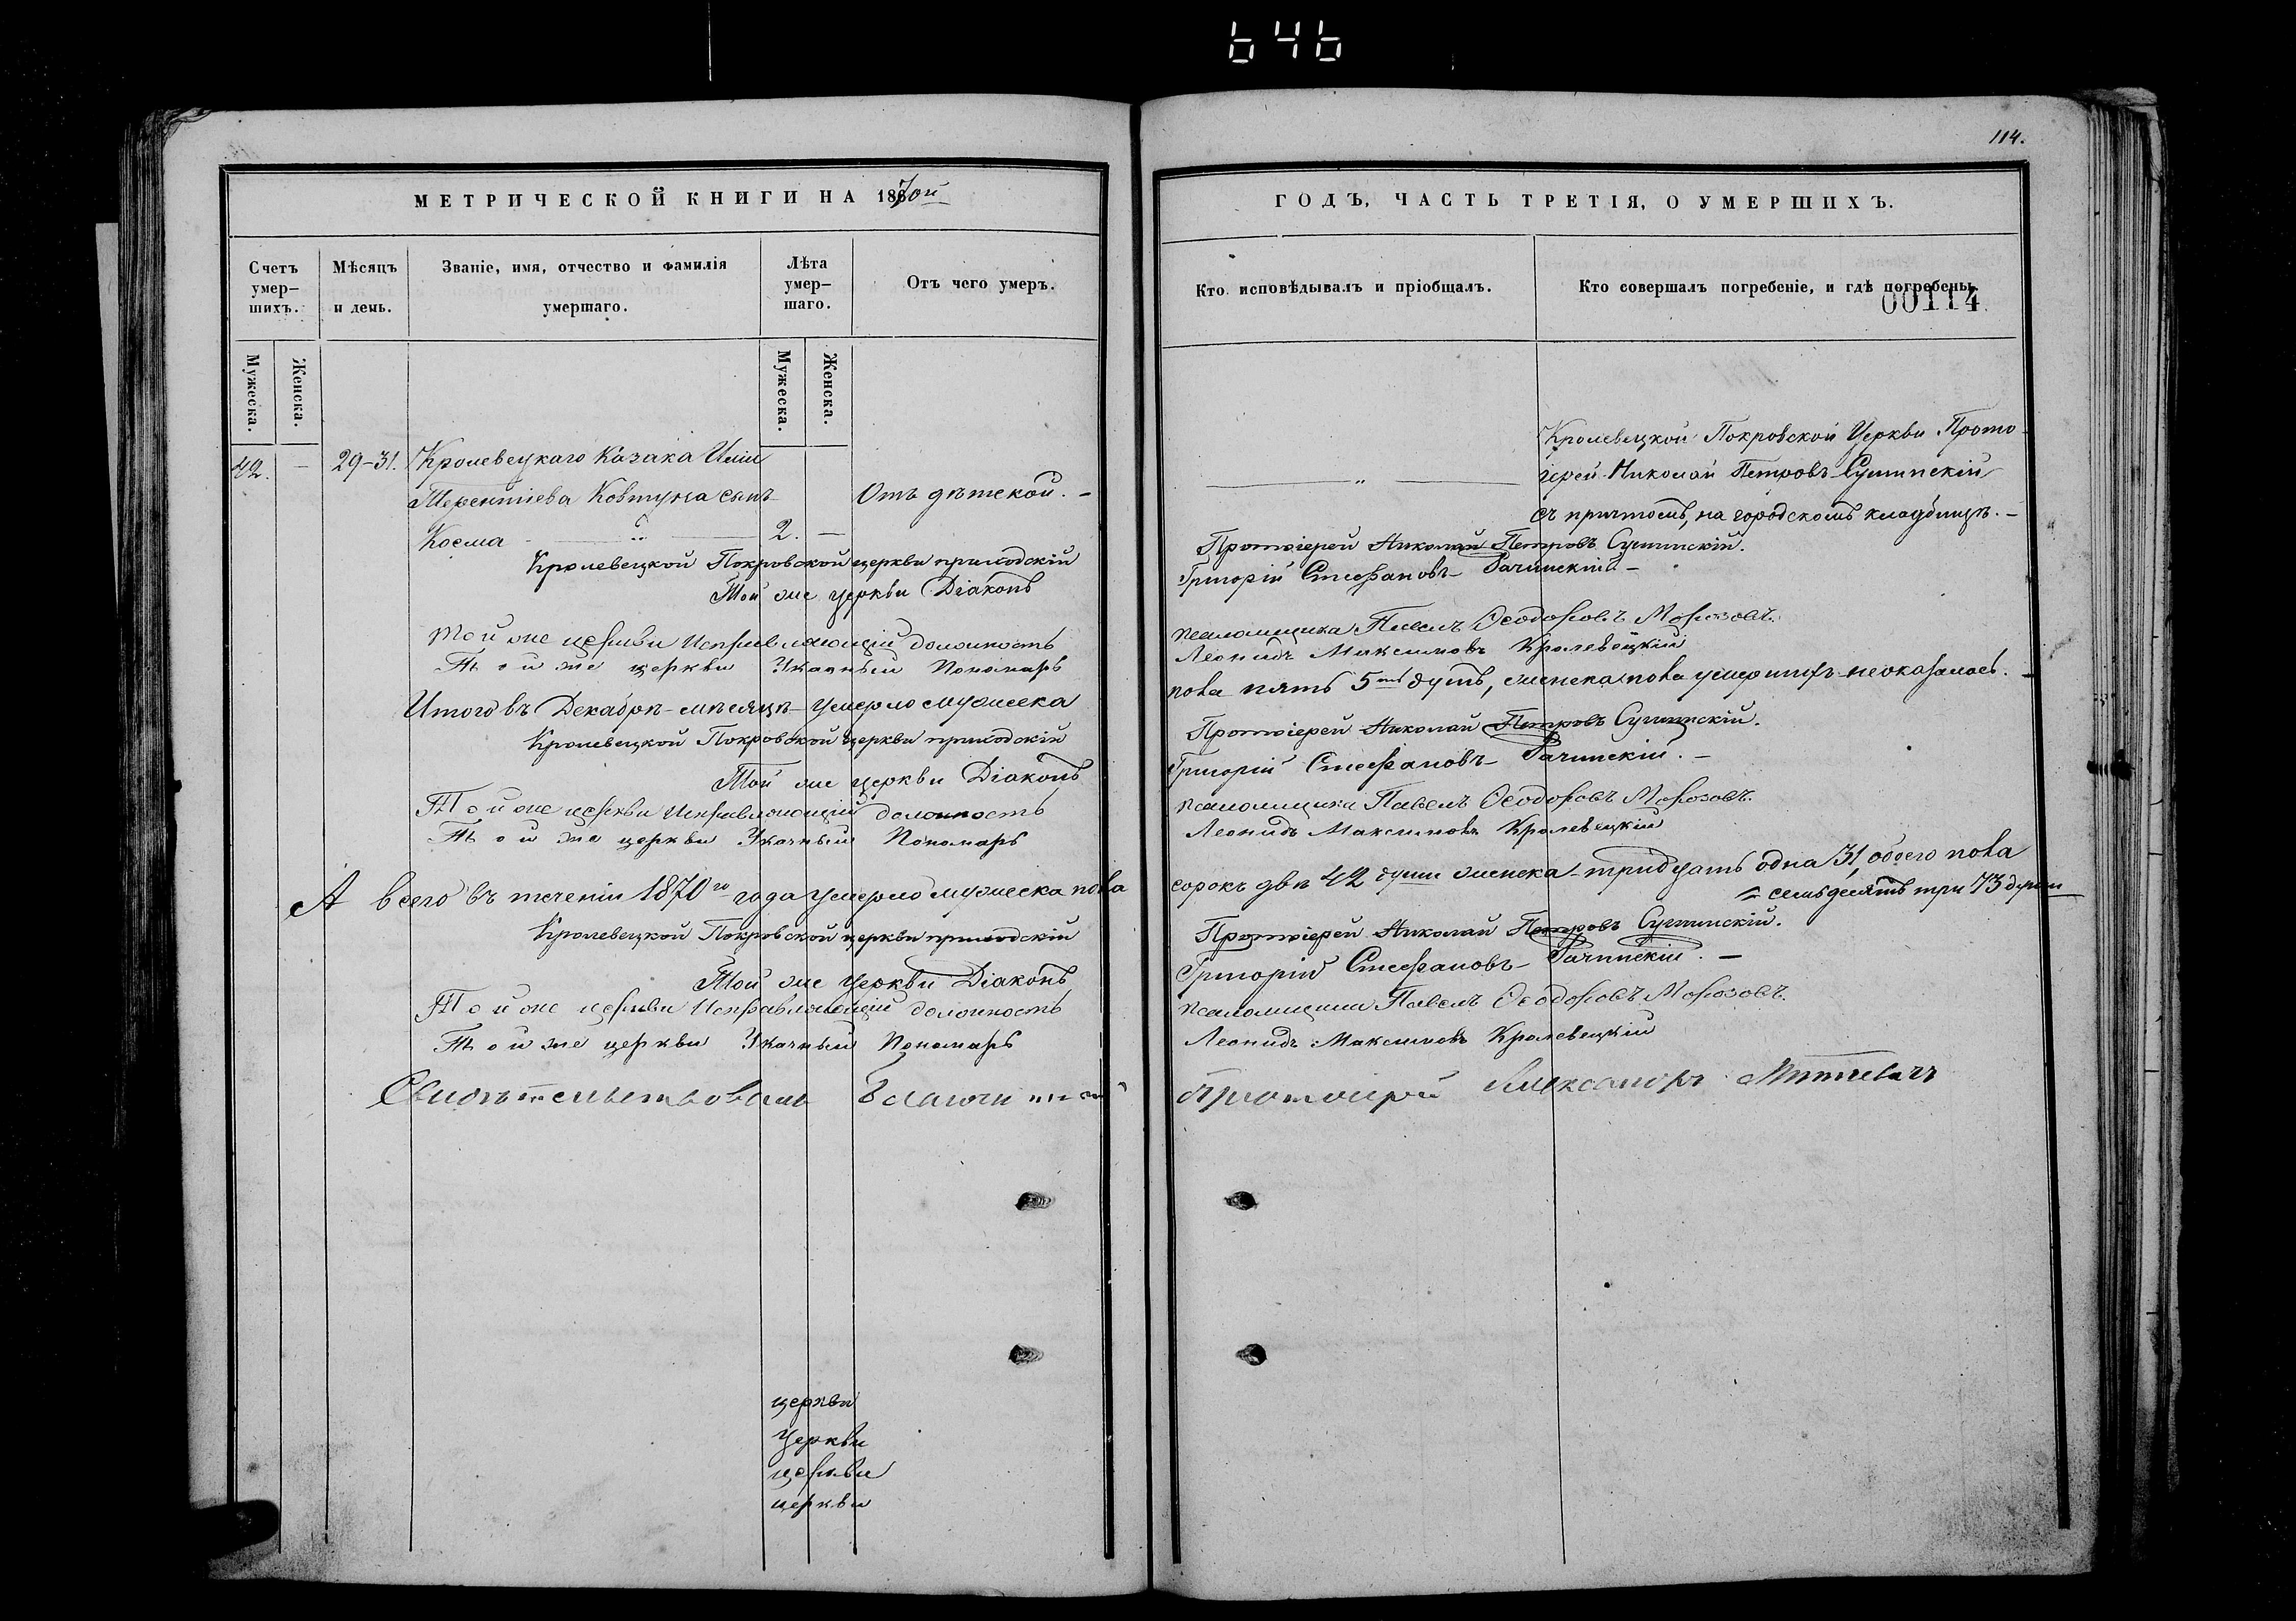 646
114.
МЕТРИЧЕСКОЙ КНИГИ НА 1870й
ГОДЪ, ЧАСТЬ ТРЕТІЯ, О УМЕРШИХЪ.
Счетъ умер-
шихъ.
Мѣсяцъ
и день.
Званіе, имя, отчество и фамилія
умершаго.
Лѣта
умер-
шаго.
Отъ чего умеръ.
Кто исповѣдывалъ и пріобщалъ.
Кто совершалъ погребеніе, и гдѣ погребены.
00114
Мужеска.
Женска.
Мужеска.
Женска.
42. — 29-31. Кролевецкаго Козака Иліи
Терентіева Ковтуна сынъ Отъ дѣтской. -
Косма „ 2. —
Кролевецкой Покровской Церкви Прото-
„ іерей Николай Петровъ
съ причтомъ, на городскомъ кладбищѣ. -
Кролевецкой Покровской церкви приходскій Протоіерей Николай Петровъ
Той же церкви Діаконъ Григорій Стефановъ
Той же церкви Исправляющій должность псаломщика Павелъ Ѳеодоровъ Морозовъ.
Той же церкви Указный Пономарь Леонидъ Максимовъ Кролевецкій
Итого въ Декабрѣ мѣсяцѣ умерло мужеска пола пять 5ть душъ, женска пола умершихъ неоказалось. -
Кролевецкой Покровской церкви приходскій Протоіерей Николай Петровъ
Той же церкви Діаконъ Григорій Стефановъ
Той же церкви Исправляющій должность псаломщика Павелъ Ѳеодоровъ Морозовъ.
Той же церкви Указный Пономарь Леонидъ Максимовъ Кролевецкій
А всего въ теченіи 1870го года умерло мужеска пола сорокъ двѣ 42 души женска тридцать одна 31, обоего пола
семьдесятъ три 73 души
Кролевецкой Покровской церкви приходскій Протоіерей Николай Петровъ
Той же церкви Діаконъ Григорій Стефановъ
Той же церкви Исправляющій должность псаломщика Павелъ Ѳеодоровъ Морозовъ.
Той же церкви Указный Пономарь Леонидъ Максимовъ Кролевецкій
Свидѣтельствовалъ Благочинный Протоіерей Александръ
церкви
Церкви
церкви
церкви